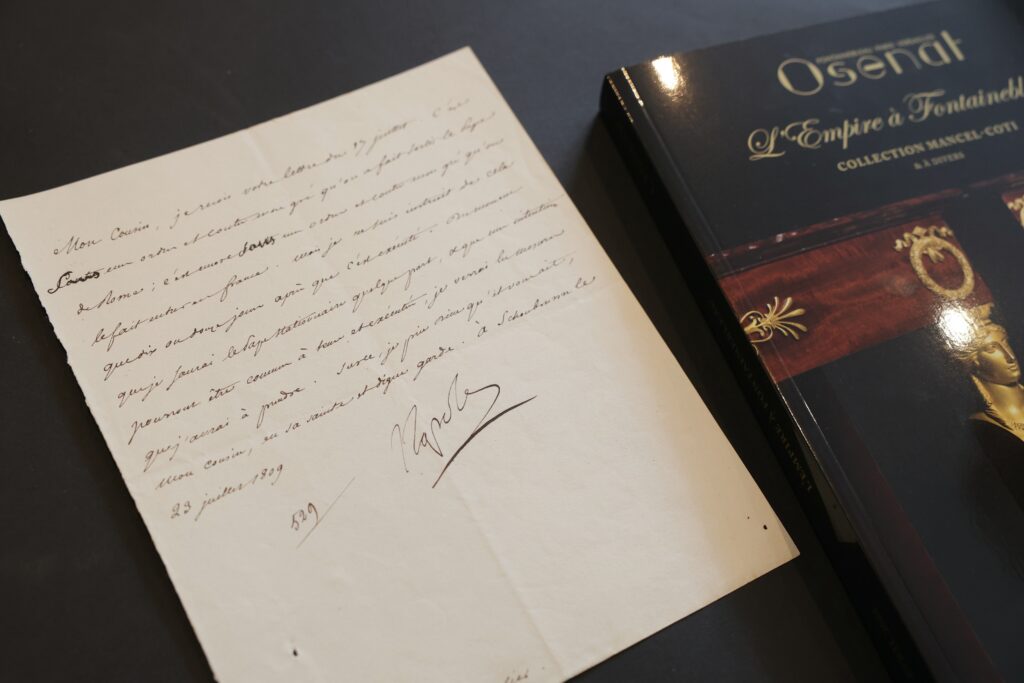 Mon Cousin, je reçois votre lettre du 17 juillet. C'est
sans mon ordre et contre mon gré qu'on a fait sortir le Pape
de Rome; c'est encore sans mon ordre et contre mon gré qu'on
le fait entrer en france. Mais je ne suis instruit de cela
que dix ou douze jours après que c'est exécuté. Du moment
que je saurai le Pape stationnaire quelque part, et que mes intentions
pourront être connues à tems et exécutées, je verrai les mesures
que j'aurai à prendre. Sur ce je prie Dieu qu'il vous ait,
Mon Cousin, en sa sainte et digne garde. à Schoenbrunn le
23 juillet 1809
Napole
529
Osenat
L'Empire à Fontainebl
COLLECTION MANCEL-COTI
& À DIVERS